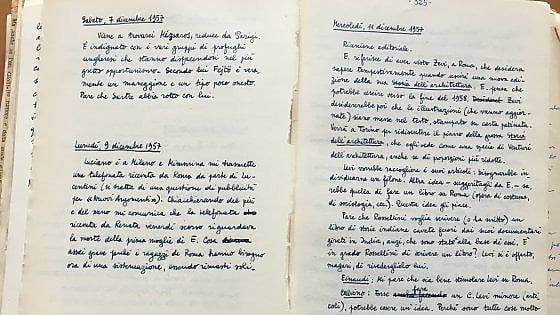 Sabato, 7 dicembre 1957
Viene a trovarci Mészaros, reduce da Parigi.
È indignato con i vari gruppi di profughi
ungheresi che stanno disfacendosi nel più
gretto opportunismo. Secondo lui Fejtö è vera-
mente un maneggione e un tipo poco onesto.
Pare che Sartre abbia rotto con lui.
Lunedì, 9 dicembre 1957
Luciano è a Milano e Mimmina mi trasmette
una telefonata ricevuta da Roma da parte di Lu-
centini (si tratta di una questione di pubblicità
per i «Nuovi Argomenti»). Chiacchierando del più
e del meno mi comunica che la telefonata
ricevuta da Renata venerdì scorso riguardava
la morte della prima moglie di E. Cosa
assai grave perché i ragazzi di Roma hanno bisogno
ora di una sistemazione, essendo rimasti soli.
- 325 -
Mercoledì, 11 dicembre 1957
Riunione editoriale.
E. riferisce di aver visto Zevi, a Roma, che desidera
sapere tempestivamente quando uscirà una nuova edi-
zione della sua Storia dell'architettura. E. pensa che
potrebbe uscire verso la fine del 1958. Zevi
desidererebbe poi che le illustrazioni (che vanno aggior-
nate) siano messe nel testo, stampato su carta patinata.
Verrà a Torino per ridiscutere il piano della grossa Storia
dell'architettura, che egli vede come una specie di Venturi
dell'architettura, anche se di proporzioni più ridotte.
Levi vorrebbe raccogliere i suoi articoli: bisognerebbe in-
dividuarne un filone. Altra idea - suggeritagli da E. - sa-
rebbe quella di fare un libro su Roma (opera di costume,
di sociologia, ecc.). Questa idea gli piace.
Pare che Rossellini voglia scrivere (o ha scritto) un
libro di storie indiane cavate fuori dai suoi documentari
girati in India, anzi, che sono state alla base di essi. È
in grado Rossellini di scrivere un libro? Levi si è offerto,
magari, di riscriverglielo lui.
Einaudi: Mi pare che via bene stimolare Levi su Roma.
Calvino: Esse fare un C. Levi minore (arti-
coli), potrebbe essere un'idea. Perché sono tutte cose molto